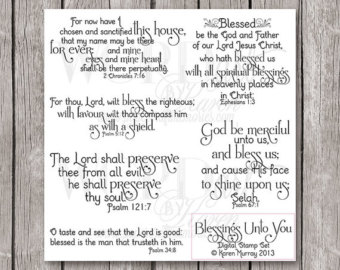 For now have I
chosen and sanctified this house,
that my name may be there
for ever: and mine
eyes and mine heart
shall be there perpetually.
2 Chronicles 7:16
Blessed
be the God and Father
of our Lord Jesus Christ,
who hath blessed us
with all spiritual blessings
in heavenly places
in Christ:
Ephesians 1:3
For thou, Lord, wilt bless the righteous;
with favour wilt thou compass him
as with a shield.
Psalm 5:12
God be merciful
unto us,
and bless us;
and cause His face
to shine upon us;
Selah.
Psalm 67:1
The Lord shall preserve
thee from all evil:
he shall preserve
thy soul.
Psalm 121:7
O taste and see that the Lord is good:
blessed is the man that trusteth in him.
Psalm 34:8
Blessings Unto You
Digital Stamp Set
© Karen Murray 2013